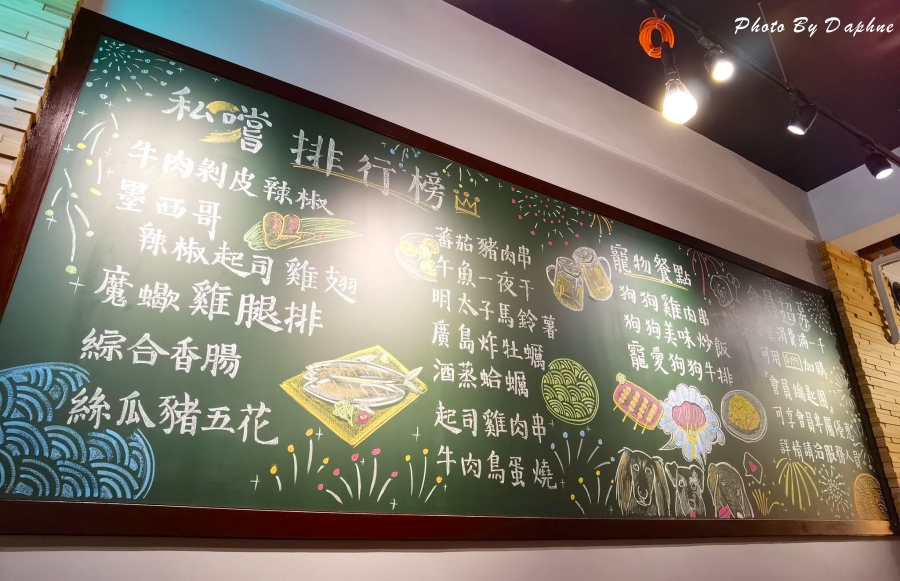 Photo By Daphne
私嚐 排行榜
牛肉剝皮辣椒
墨西哥
辣椒起司雞翅
魔蠍雞腿排
綜合香腸
絲瓜豬五花
蕃茄豬肉串
午魚一夜干
明太子馬鈴薯
廣島炸牡蠣
酒蒸蛤蠣
起司雞肉串
牛肉鳥蛋燒
寵物餐點
狗狗雞肉串
狗狗美味炒飯
寵愛狗狗牛排
會員招募
消費滿一千
可用
加購
可享會員專屬優惠
詳情請洽服務人員